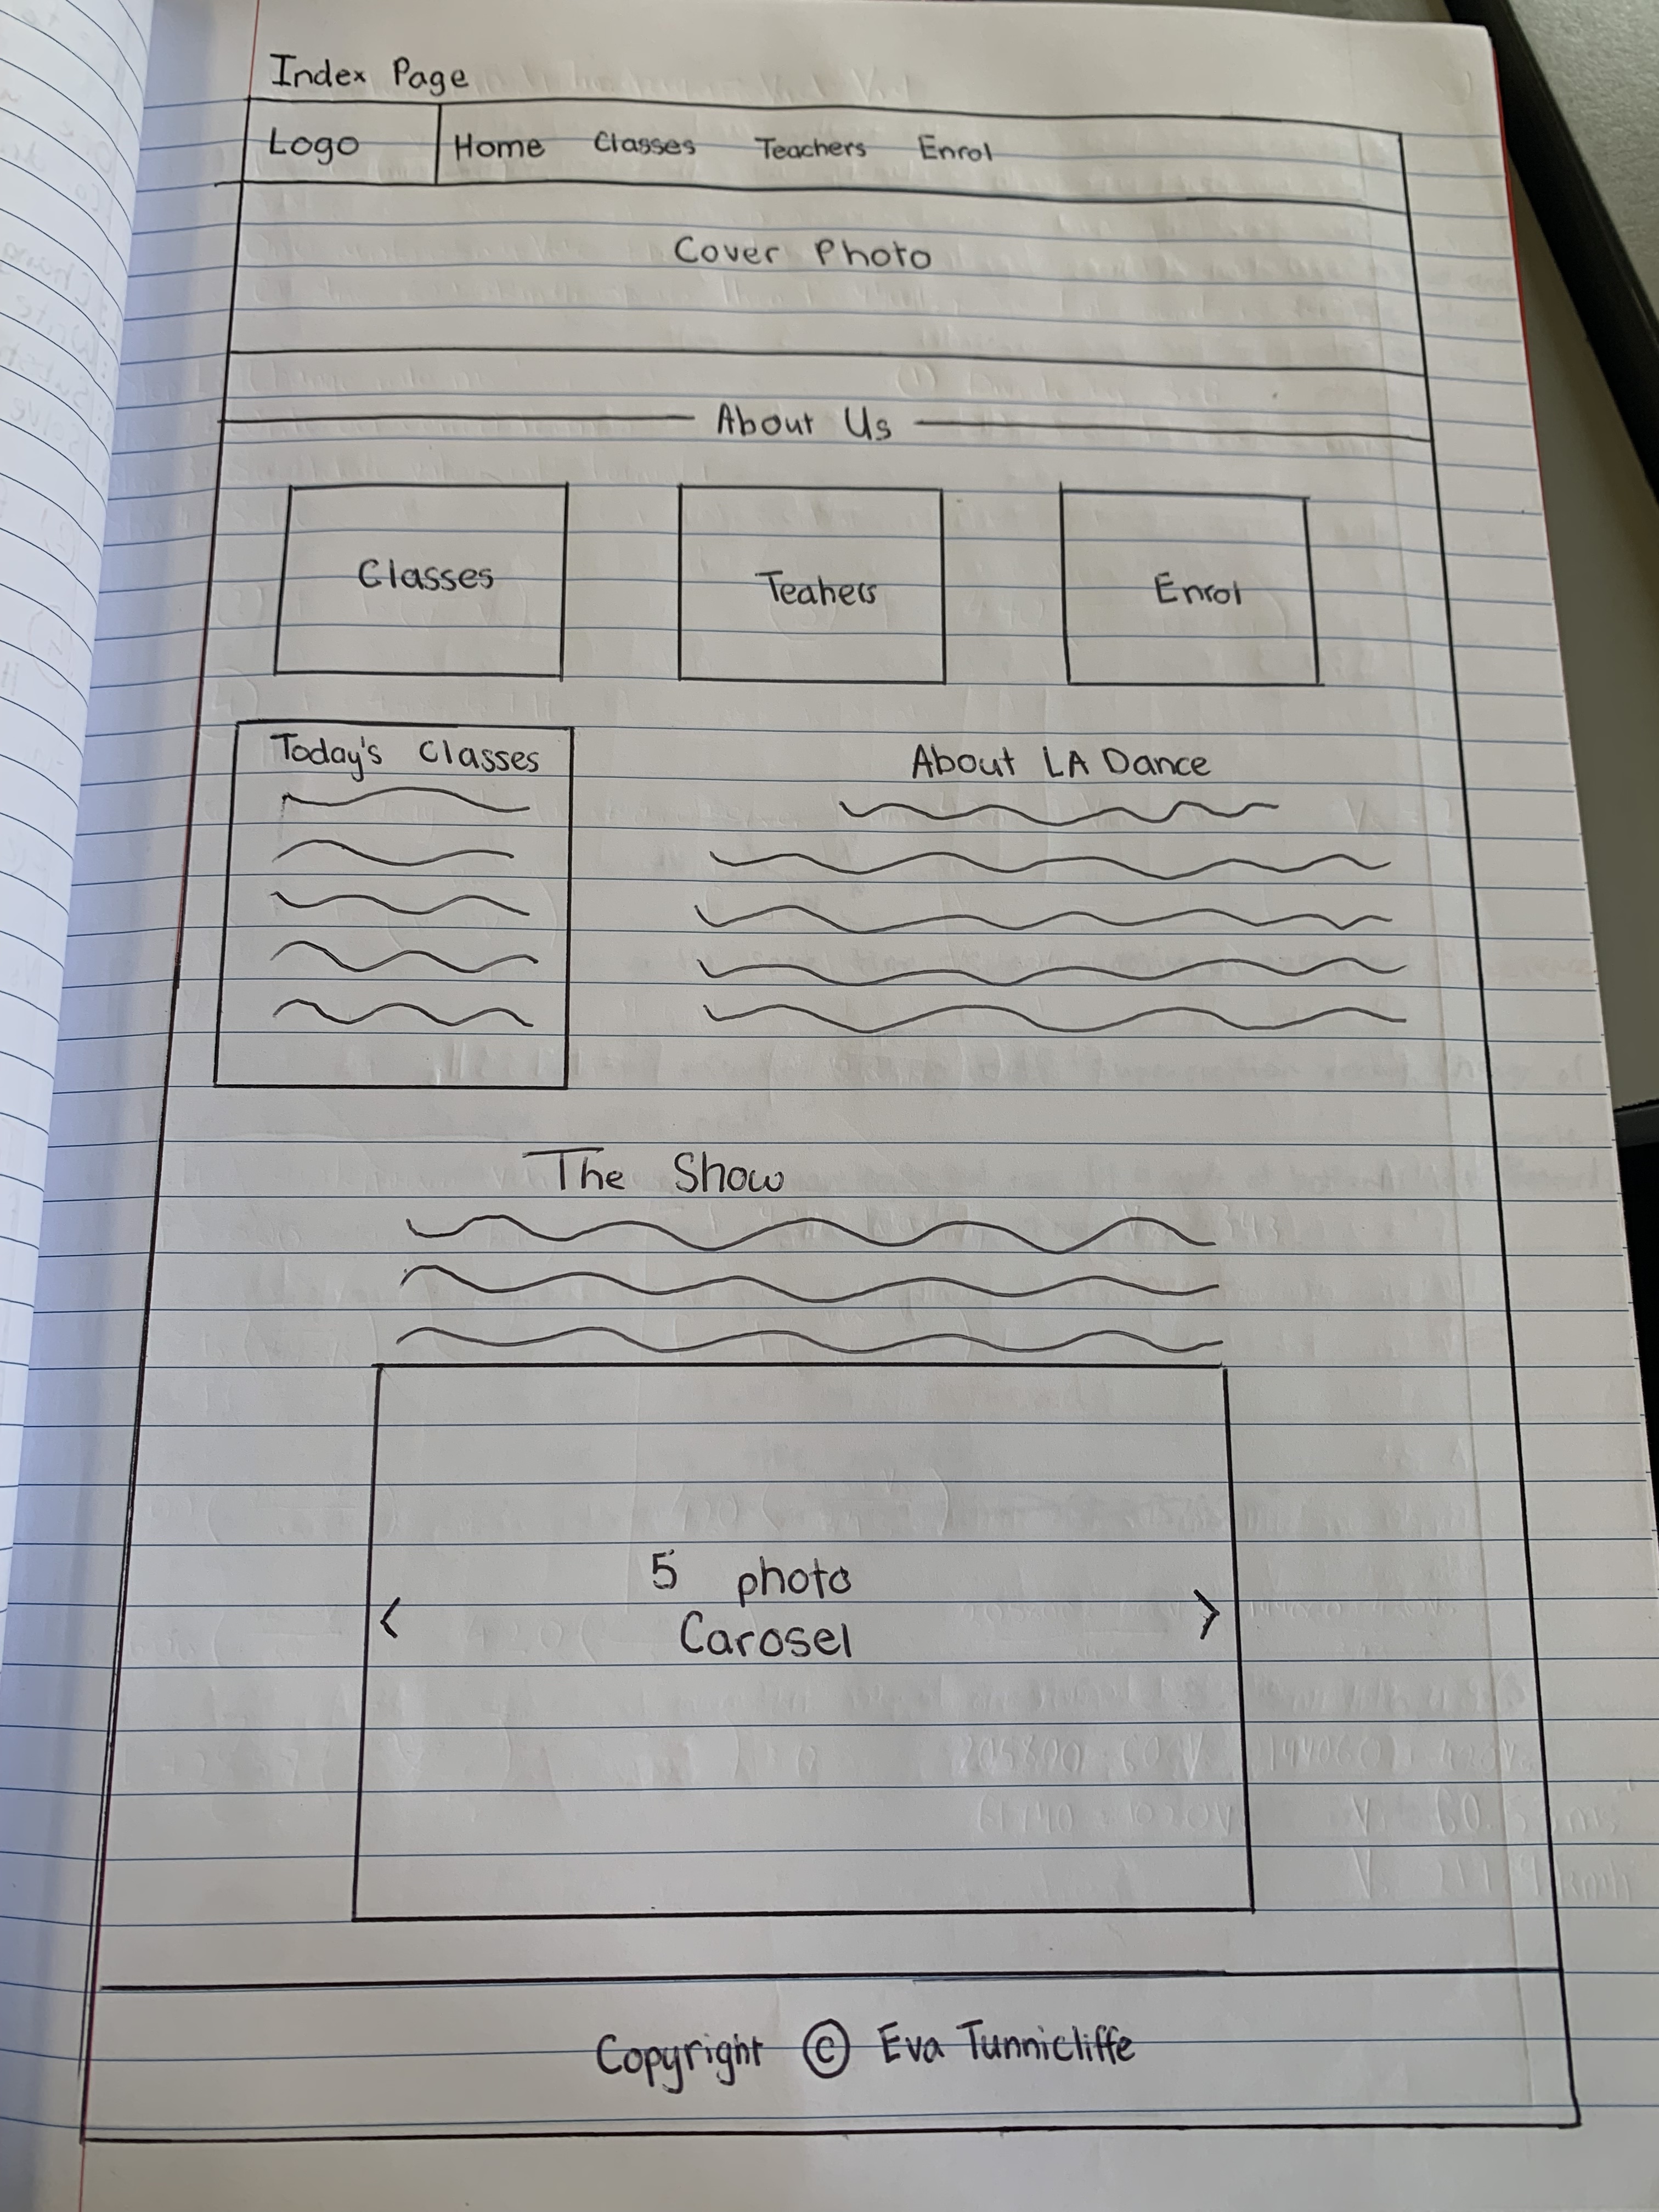 Index Page
Logo Home Classes Teachers Enrol
Cover Photo
About Us
Classes Teahers Enrol
Today's Classes
About LA Dance
The Show
5 photo
Carosel
< >
Copyright © Eva Tunnicliffe